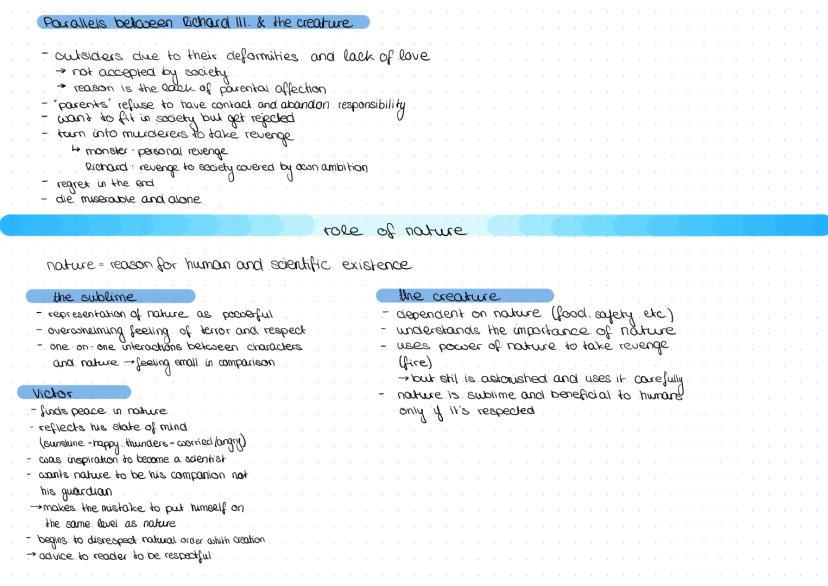 Parallels between Richard III. & the creature
- outsiders due to their deformities and lack of love
→ not accepted by society
→ reason is the lack of parental affection
- 'parents' refuse to have contact and abandon responsibility
- want to fit in society but get rejected
- turn into murderers to take revenge
↳ monster: personal revenge
Richard: revenge to society covered by own ambition
- regret in the end
- die miserable and alone
role of nature
nature = reason for human and scientific existence
the sublime
- representation of nature as powerful
- overwhelming feeling of terror and respect
- one-on-one interactions between characters
and nature → feeling small in comparison
Victor
- finds peace in nature
- reflects his state of mind
(sunshine - happy, thunders - worried/angry)
- was inspiration to become a scientist
- wants nature to be his companion not
his guardian
→ makes the mistake to put himself on
the same level as nature
- begins to disrespect natural order with creation
→ advice to reader to be respectful
the creature
- dependent on nature (food, safety etc.)
- understands the importance of nature
- uses power of nature to take revenge
(fire)
→ but still is astonished and uses it carefully
- nature is sublime and beneficial to humans
only if it's respected